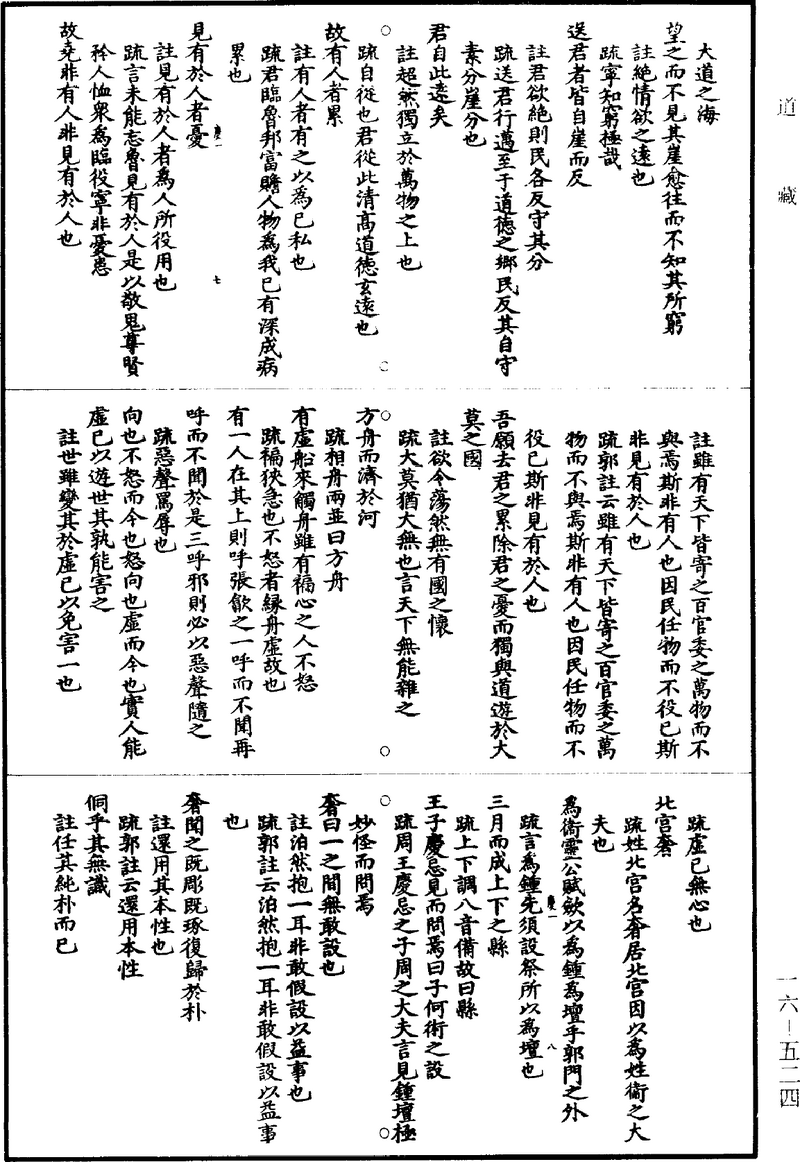 道藏
大道之海
望之而不見其崖愈往而不知其所窮
註絕情欲之遠也
疏寧知窮極哉
送君者皆自崖而反
註君欲絕則民各反守其分
疏送君行邁至于道德之鄉民反其自守
素分崖分也
君自此遠矣
註超然獨立於萬物之上也
疏自從也君從此清高道德玄遠也
故有人者累
註有人者有之以為己私也
疏君臨魯邦富贍人物為我己有深成病
累也
見有於人者憂
慶一
七
註見有於人者為人所役用也
疏言未能忘魯見有於人是以敬鬼尊賢
矜人恤眾為臨役寧非憂患
故堯非有人非見有於人也
註雖有天下皆寄之百官委之萬物而不
與焉斯非有人也因民任物而不役己斯
非見有於人也
疏郭註云雖有天下皆寄之百官委之萬
物而不與焉斯非有人也因民任物而不
役己斯非見有於人也
吾願去君之累除君之憂而獨與道遊於大
莫之國
註欲令蕩然無有國之懷
疏大莫猶大無也言天下無能雜之
方舟而濟於河
疏相舟兩並曰方舟
有虛船來觸舟雖有褊心之人不怒
疏褊狹急也不怒者緣舟虛故也
有一人在其上則呼張歙之一呼而不聞再
呼而不聞於是三呼邪則必以惡聲隨之
疏惡聲罵辱也
向也不怒而今也怒向也虛而今也實人能
虛己以遊世其孰能害之
註世雖變其於虛己以免害一也
疏虛己無心也
北宮奢
疏姓北宮名奢居北宮因以為姓衛之大
夫也
為衛靈公賦斂以為鍾為壇乎郭門之外
慶一
八
疏言為鍾先須設祭所以為壇也
三月而成上下之縣
疏上下調八音備故曰縣
王子慶忌見而問焉曰子何術之設
疏周王慶忌之子周之大夫言見鍾壇極
妙怪而問焉
奢曰一之間無敢設也
註泊然抱一耳非敢假設以益事也
疏郭註云泊然抱一耳非敢假設以益事
也
奢聞之既彫既琢復歸於朴
註還用其本性也
疏郭註云還用本性
侗乎其無識
註任其純朴而已
一六—五二四